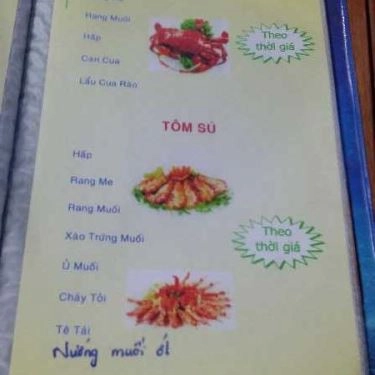 Rang Muối
Hấp
Càri Cua
Lẩu Cua Rào
Theo
thời giá
TÔM SÚ
Hấp
Rang Me
Rang Muối
Xào Trứng Muối
Ủ Muối
Cháy Tỏi
Tê Tái
Nướng muối ớt
Theo
thời giá